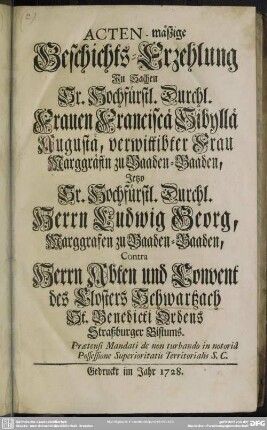 ACTEN-mäßige
Geschichts-Erzehlung
In Sachen
Sr. Hochfürstl. Durchl.
Frauen Franciscä Sibyllä
Augustä, verwittibter Frau
Marggräfin zu Baaden-Baaden,
Jetzo
Sr. Hochfürstl. Durchl.
Herrn Ludwig Georg,
Marggrafen zu Baaden-Baaden,
Contra
Herrn Abten und Convent
des Closters Schwartzach
St. Benedicti Ordens
Straßburger Bistums.
Prætensi Mandati de non turbando in notoriâ
Possessione Superioritatis Territorialis S. C.
Gedruckt im Jahr 1728.